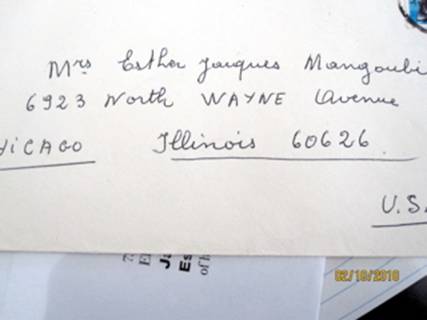 Mrs Esther Jacques Mangoubi
6923 North WAYNE Avenue
HiCAGO Illinois 60626
U.S.
02/10/2010